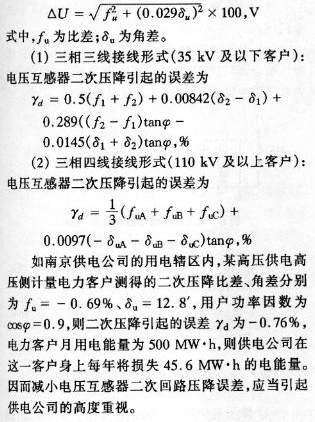 ΔU = √(f_u² + (0.029δ_u)²) × 100, V
式中,f_u 为比差;δ_u 为角差。
(1) 三相三线接线形式(35 kV 及以下客户):
电压互感器二次压降引起的误差为
γ_d = 0.5(f_1 + f_2) + 0.00842(δ_2 − δ_1) +
0.289((f_2 − f_1)tanφ −
0.0145(δ_1 + δ_2)tanφ,%
(2) 三相四线接线形式(110 kV 及以上客户):
电压互感器二次压降引起的误差为
γ_d = 1/3(f_uA + f_uB + f_uC) +
0.0097(− δ_uA − δ_uB − δ_uC)tanφ,%
如南京供电公司的用电辖区内,某高压供电高
压侧计量电力客户测得的二次压降比差、角差分别
为 f_u = − 0.69%、δ_u = 12.8′,用户功率因数为
cosφ=0.9,则二次压降引起的误差 γ_d 为−0.76%,
电力客户月用电能量为 500 MW·h,则供电公司在
这一客户身上每年将损失 45.6 MW·h 的电能量。
因而减小电压互感器二次回路压降误差,应当引起
供电公司的高度重视。